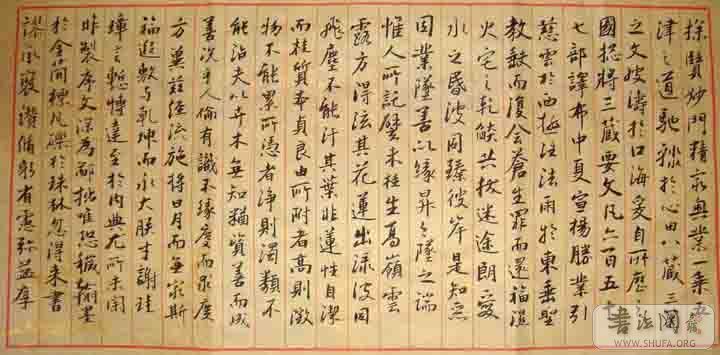 探賾妙門精窮奧業一乘五
津之道馳驟於心田八藏三篋
之文波濤於口海爰自所歷之
國捴將三藏要文凡六百五十
七部譯布中夏宣揚勝業引
慈雲於西極注法雨於東垂聖
教缺而復全蒼生罪而還福濕
火宅之乾焰共拔迷途朗愛
水之昏波同臻彼岸是知惡
因業墜善以緣昇昇墜之端
惟人所託譬夫桂生高嶺雲
露方得泫其花蓮出淥波
飛塵不能汙其葉非蓮性自潔
而桂質本貞良由所附者高則微
物不能累所憑者淨則濁類不
能沾夫以卉木無知猶資善而成
善況乎人倫有識不緣慶而求慶
方冀茲經流施將日月而無窮斯
福遐敷與乾坤而永大朕才謝珪
璋言慚博達至於內典尤所未閑
昨製序文深為鄙拙唯恐穢翰墨
於金簡標瓦礫於珠林忽得來書
謬承褒讚循躬省慮弥益厚
书法网
WWW.SHUFA.ORG